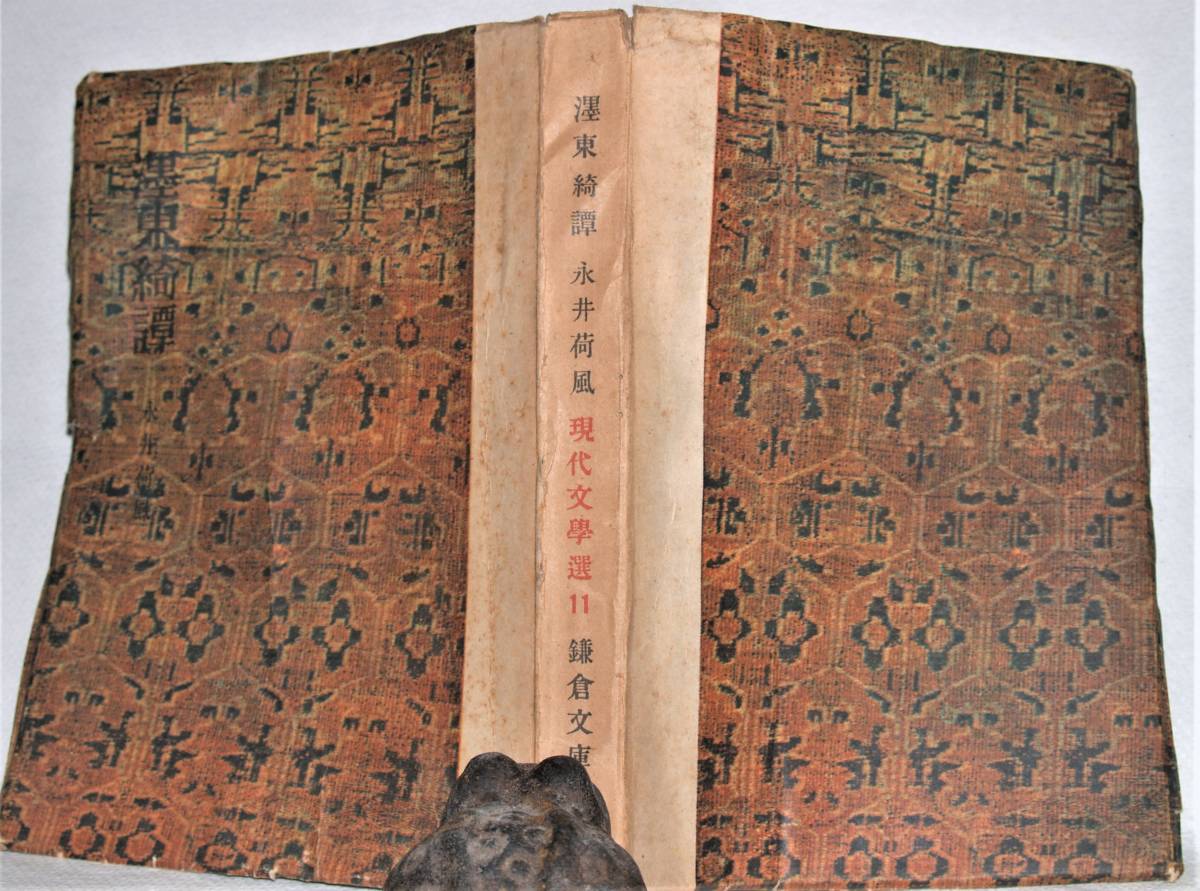 濹東綺譚
永井荷風
濹東綺譚 永井荷風 現代文學選 11 鎌倉文庫